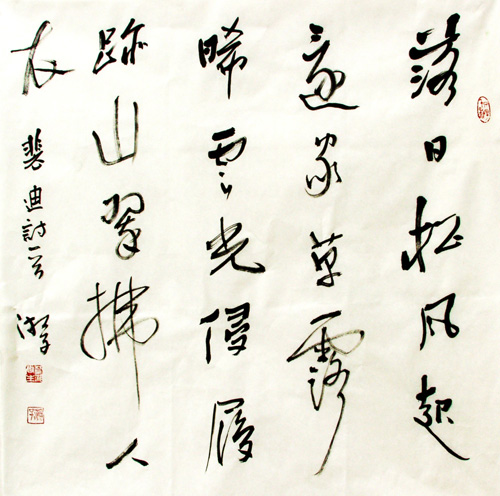 落日松风起
還家草露
晞雲光侵履
跡山翠拂人
衣 裴迪詩一首